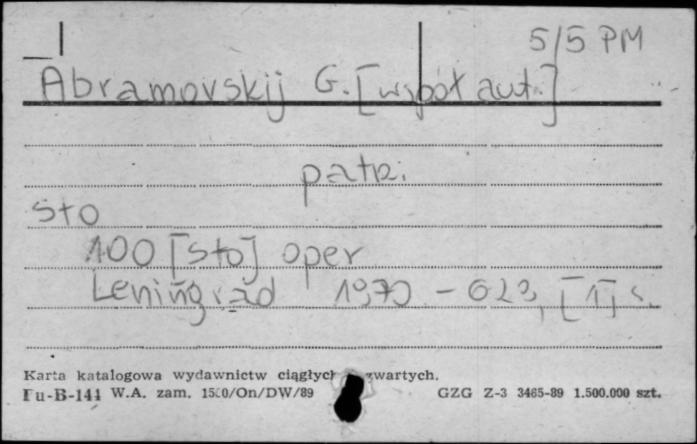 5/5 PM
Abramovskij G. [współ aut.]
patrz.
sto
100 [sto] oper
Leningrad 1970 - 623, [1] s.
Karta katalogowa wydawnictw ciągłych zwartych.
Pu-B-141 W.A. zam. 1500/On/DW/89 GZG Z-3 3465-89 1.500.000 szt.